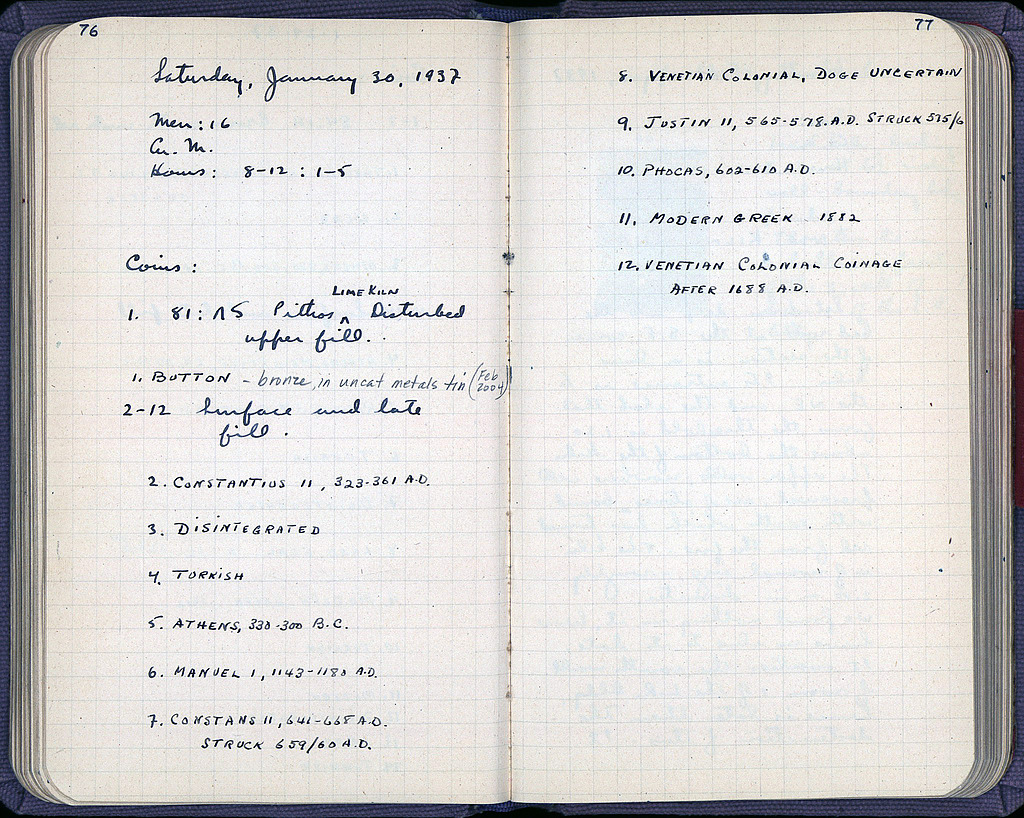 76
Saturday, January 30, 1937
Men: 16
Hours: 8-12 : 1-5
Coins:
LIME KILN
1. 81: ΛS Pithos ^ Disturbed
upper fill.
1. BUTTON - bronze, in uncat metals tin (Feb 2004)
2-12 Surface and late
fill.
2. CONSTANTIUS II, 323-361 A.D.
3. DISINTEGRATED
4. TURKISH
5. ATHENS, 330-300 B.C.
6. MANUEL I, 1143-1180 A.D.
7. CONSTANS II, 641-668 A.D.
STRUCK 659/60 A.D.
77
8. VENETIAN COLONIAL, DOGE UNCERTAIN
9. JUSTIN II, 565-578 A.D. STRUCK 575/6
10. PHOCAS, 602-610 A.D.
11. MODERN GREEK 1882
12. VENETIAN COLONIAL COINAGE
AFTER 1688 A.D.